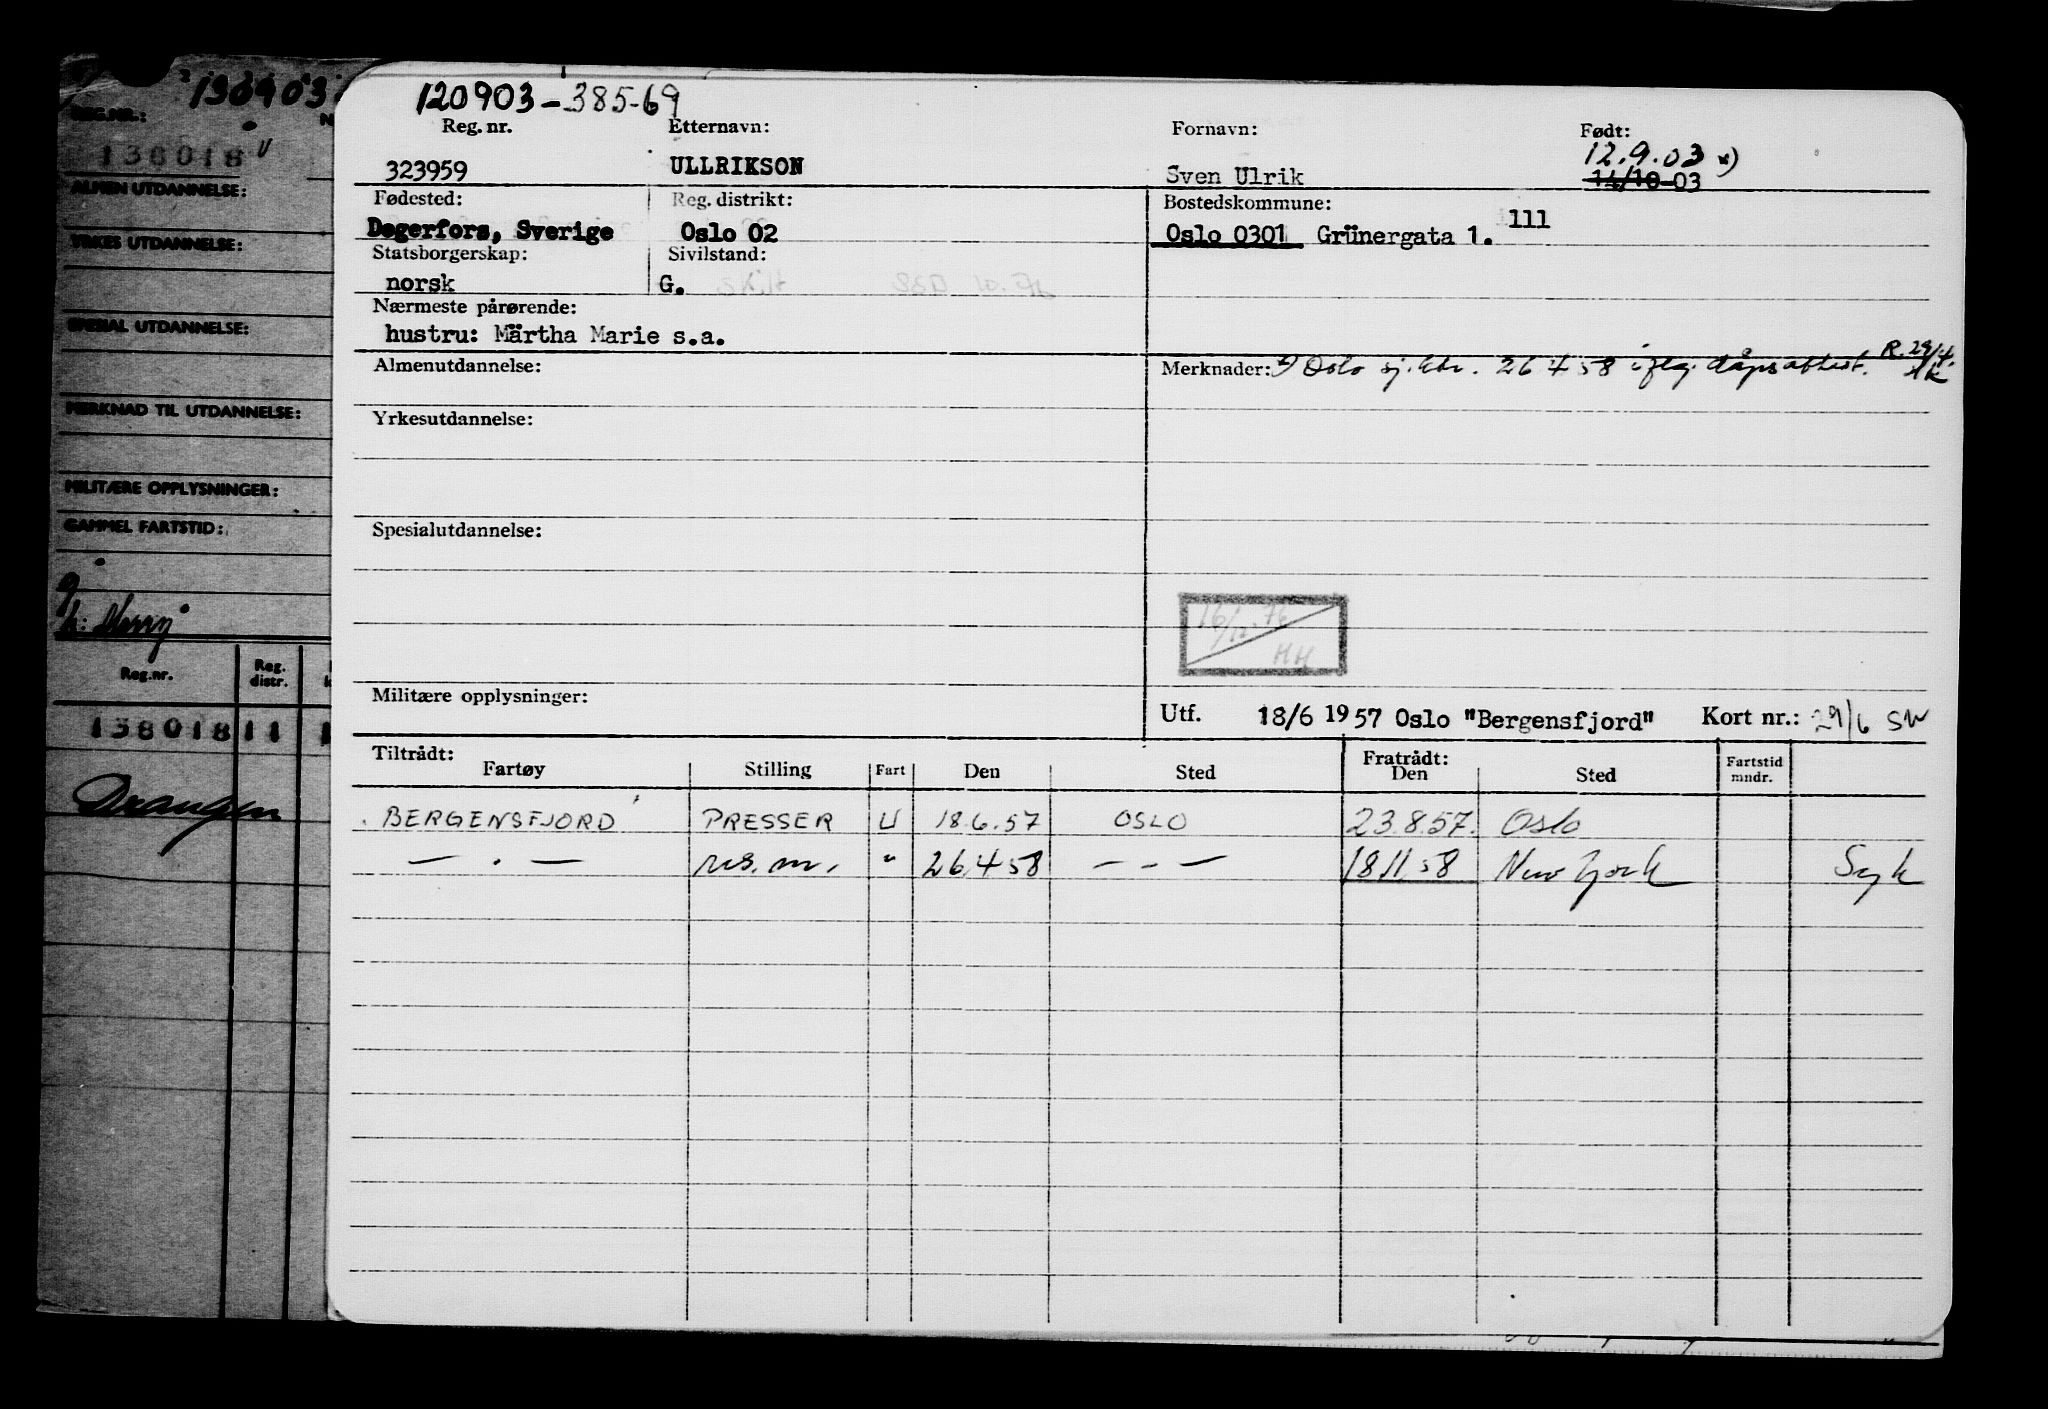 130903
REG.NR.:
136018 v
ALMEN UTDANNELSE:
YRKES UTDANNELSE:
SPESIAL UTDANNELSE:
MERKNAD TIL UTDANNELSE:
MILITÆRE OPPLYSNINGER:
GAMMEL FARTSTID:
Reg.nr. Reg. distr.
138018 11 1
Draugen
120903-385-69
Reg. nr. Etternavn: Fornavn: Født:
12.9.03 x)
323959 ULLRIKSON Sven Ulrik 14/10-03
Fødested: Reg. distrikt: Bostedskommune:
Degerfors, Sverige Oslo 02 Oslo 0301 Grünergata 1. 111
Statsborgerskap: Sivilstand:
norsk G.
Nærmeste pårørende:
hustru: Märtha Marie s.a.
Almenutdannelse: Merknader: x) Oslo sj.ktr. 26 4 58 iflg. dåpsattest. R. 29/4.
Yrkesutdannelse:
Spesialutdannelse:
16/12.76
HH
Militære opplysninger: Utf. 18/6 1957 Oslo "Bergensfjord" Kort nr.: 29/6 SW
Tiltrådt: Fratrådt: Fartstid mndr.
Fartøy Stilling Fart Den Sted Den Sted
BERGENSFJORD PRESSER U 18.6.57 OSLO 23.8.57. Oslo
— . — res. m. " 26.4 58 — - — 18.11.58 New York Syk